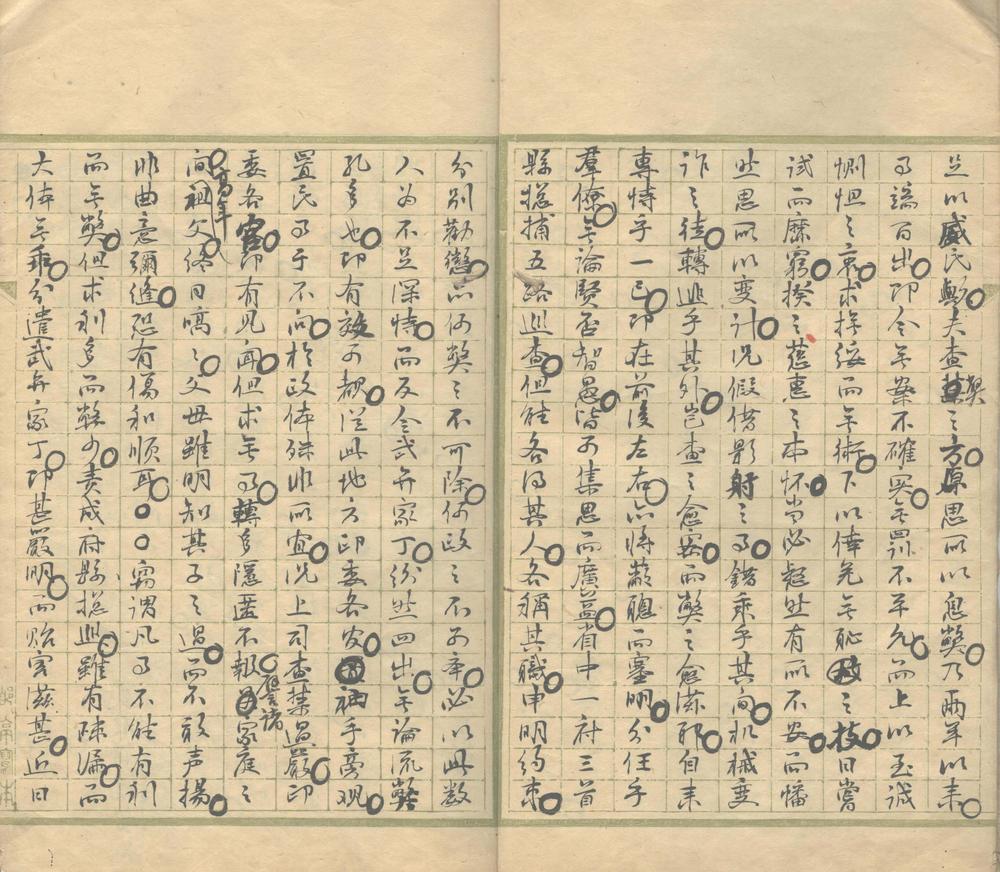 足以威民歟夫查禁之方原思所以息弊乃兩年以來
事端百出印令無案不確罪無罰不平允而上以至誠
惻怛之哀求撫綏而無術下以倖免無恥之技日嘗
試而靡窮揆之慈惠之本懷當必歉然有所不安而幡
然思所以變計況假借影射之事錯乘乎其間機械變
詐之徒轉遁乎其外豈查之愈密而弊之愈滋耶自來
專恃乎一己印在前後左右亦恃蔽聰而塞明分任乎
羣僚無論賢否智愚皆可集思而廣益省中一府三首
縣總捕五路巡查但能各得其人各稱其職申明約束
分別勸懲亦何弊之不可除何政之不可舉必以此數
人為不足深恃而反令武弁家丁紛然四出無論流弊
孔多也印有效可覩從此地方印委各官袖手旁觀
置民事于不問於政体殊非所宜況上司查禁過嚴印
委各官印有見聞但求無事轉多隱匿不報家庭之
間高年祖父終日嗃嗃父母雖明知其子之過而不敢声揚
非曲意彌縫恐有傷和順耳竊謂凡事不能有利
而無弊但求利多而弊少責成府縣總巡雖有疎漏而
大体無乖分遣武弁家丁印甚嚴明而貽害滋甚近日